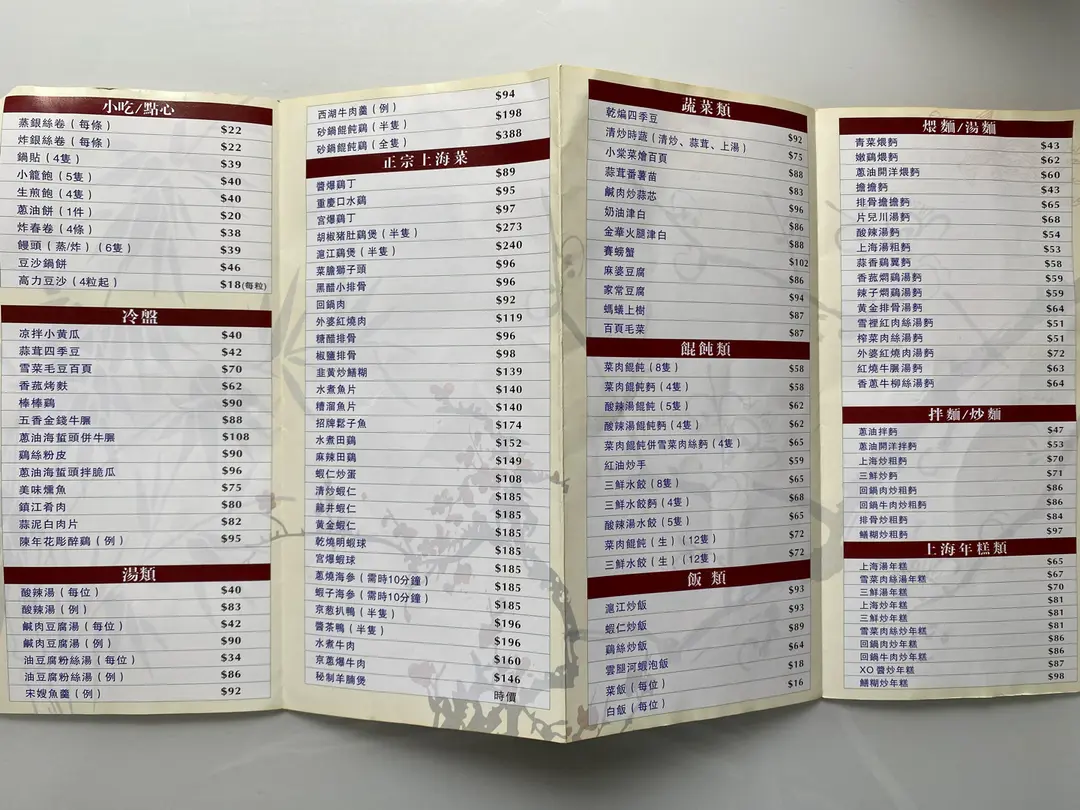 小吃/點心
蒸銀絲卷（每條） $22
炸銀絲卷（每條） $22
鍋貼（4隻） $39
小籠飽（5隻） $40
生煎飽（4隻） $40
蔥油餅（1件） $20
炸春卷（4條） $38
饅頭（蒸/炸）（6隻） $39
豆沙鍋餅 $46
高力豆沙（4粒起） $18(每粒)
冷盤
凉拌小黄瓜 $40
蒜茸四季豆 $42
雪菜毛豆百頁 $70
香菰烤麩 $62
棒棒鷄 $90
五香金錢牛腒 $88
蔥油海蜇頭併牛腒 $108
鷄絲粉皮 $90
蔥油海蜇頭拌脆瓜 $96
美味燻魚 $75
鎮江肴肉 $80
蒜泥白肉片 $82
陳年花彫醉鷄（例） $95
湯類
酸辣湯（每位） $40
酸辣湯（例） $83
鹹肉豆腐湯（每位） $42
鹹肉豆腐湯（例） $90
油豆腐粉絲湯（每位） $34
油豆腐粉絲湯（例） $86
宋嫂魚羹（例） $92
西湖牛肉羹（例） $94
砂鍋餛飩鷄（半隻） $198
砂鍋餛飩鷄（全隻） $388
正宗上海菜
醬爆鷄丁 $89
重慶口水鷄 $95
宮爆鷄丁 $97
胡椒豬肚鷄煲（半隻） $273
滬江鷄煲（半隻） $240
菜膽獅子頭 $96
黑醋小排骨 $96
回鍋肉 $92
外婆紅燒肉 $119
糖醋排骨 $96
椒鹽排骨 $98
韭黄炒鱔糊 $139
水煮魚片 $140
槽溜魚片 $140
招牌鬆子魚 $174
水煮田鷄 $152
麻辣田鷄 $149
蝦仁炒蛋 $108
清炒蝦仁 $185
龍井蝦仁 $185
黃金蝦仁 $185
乾燒明蝦球 $185
宮爆蝦球 $185
蔥燒海參（需時10分鐘） $185
蝦子海參（需時10分鐘） $185
京葱扒鴨（半隻） $196
醬茶鴨（半隻） $196
水煮牛肉 $160
京蔥爆牛肉 $146
秘制羊腩煲 時價
蔬菜類
乾煸四季豆 $92
清炒時蔬（清炒、蒜茸、上湯） $75
小棠菜燴百頁 $88
蒜茸番薯苗 $83
鹹肉炒蒜芯 $96
奶油津白 $86
金華火腿津白 $88
賽螃蟹 $102
麻婆豆腐 $86
家常豆腐 $94
螞蟻上樹 $87
百頁毛菜 $87
餛飩類
菜肉餛飩（8隻） $58
菜肉餛飩麫（4隻） $58
酸辣湯餛飩（5隻） $62
酸辣湯餛飩麫（4隻） $62
菜肉餛飩併雪菜肉絲麫（4隻） $65
紅油炒手 $59
三鮮水餃（8隻） $65
三鮮水餃麫（4隻） $68
酸辣湯水餃（5隻） $65
菜肉餛飩（生）（12隻） $72
三鮮水餃（生）（12隻） $72
飯 類
滬江炒飯 $93
蝦仁炒飯 $93
鷄絲炒飯 $89
雲腿河蝦泡飯 $64
菜飯（每位） $18
白飯（每位） $16
煨麵/湯麵
青菜煨麫 $43
嫩鷄煨麫 $62
蔥油開洋煨麫 $60
擔擔麫 $43
排骨擔擔麫 $65
片兒川湯麫 $68
酸辣湯麫 $54
上海湯粗麫 $53
蒜香鷄翼麫 $58
香菰燜鷄湯麫 $59
辣子燜鷄湯麫 $59
黄金排骨湯麫 $64
雪裡紅肉絲湯麫 $51
榨菜肉絲湯麫 $51
外婆紅燒肉湯麫 $72
紅燒牛腒湯麫 $63
香蔥牛柳絲湯麫 $64
拌麵/炒麵
蔥油拌麫 $47
蔥油開洋拌麫 $53
上海炒粗麫 $70
三鮮炒麫 $71
回鍋肉炒粗麫 $86
回鍋牛肉炒粗麫 $86
排骨炒粗麫 $84
鱔糊炒粗麫 $97
上海年糕類
上海湯年糕 $65
雪菜肉絲湯年糕 $67
三鮮湯年糕 $70
上海炒年糕 $81
三鮮炒年糕 $81
雪菜肉絲炒年糕 $81
回鍋肉炒年糕 $86
回鍋牛肉炒年糕 $86
XO醬炒年糕 $87
鱔糊炒年糕 $98